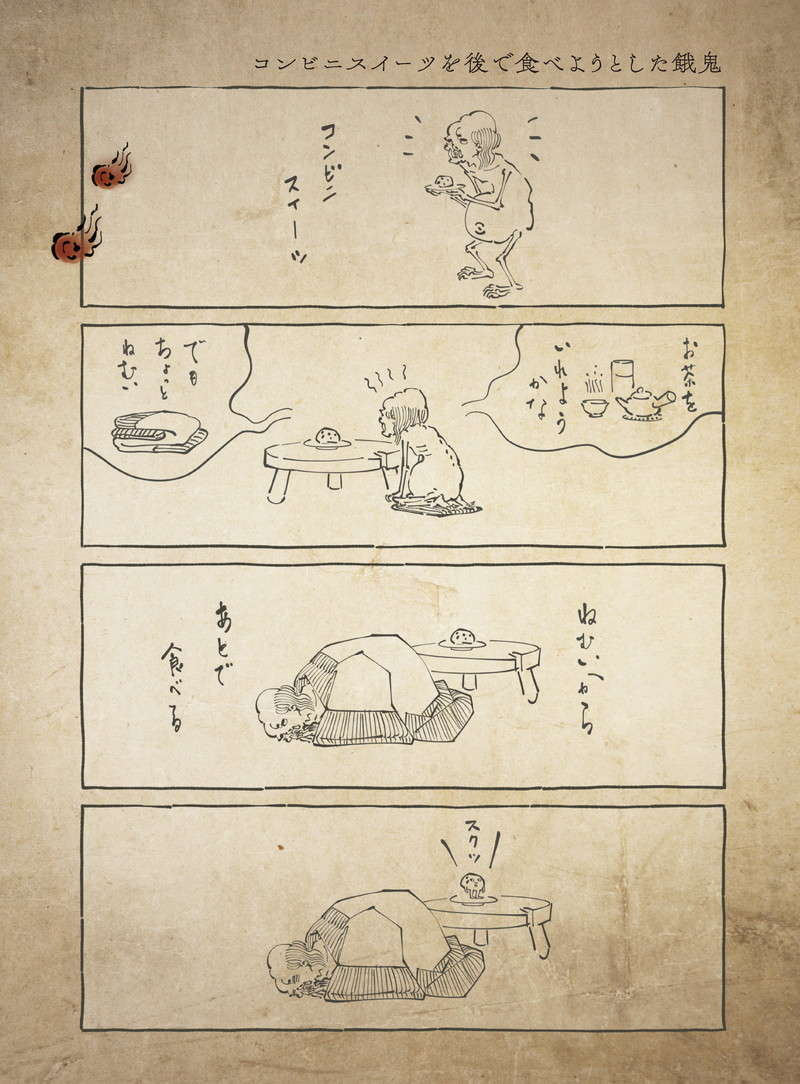 コンビニスイーツを後で食べようとした餓鬼
コンビニ
スイーツ
お茶を
いれよう
かな
でも
ちょっと
ねむい
ねむいから
あとで
食べる
スクッ